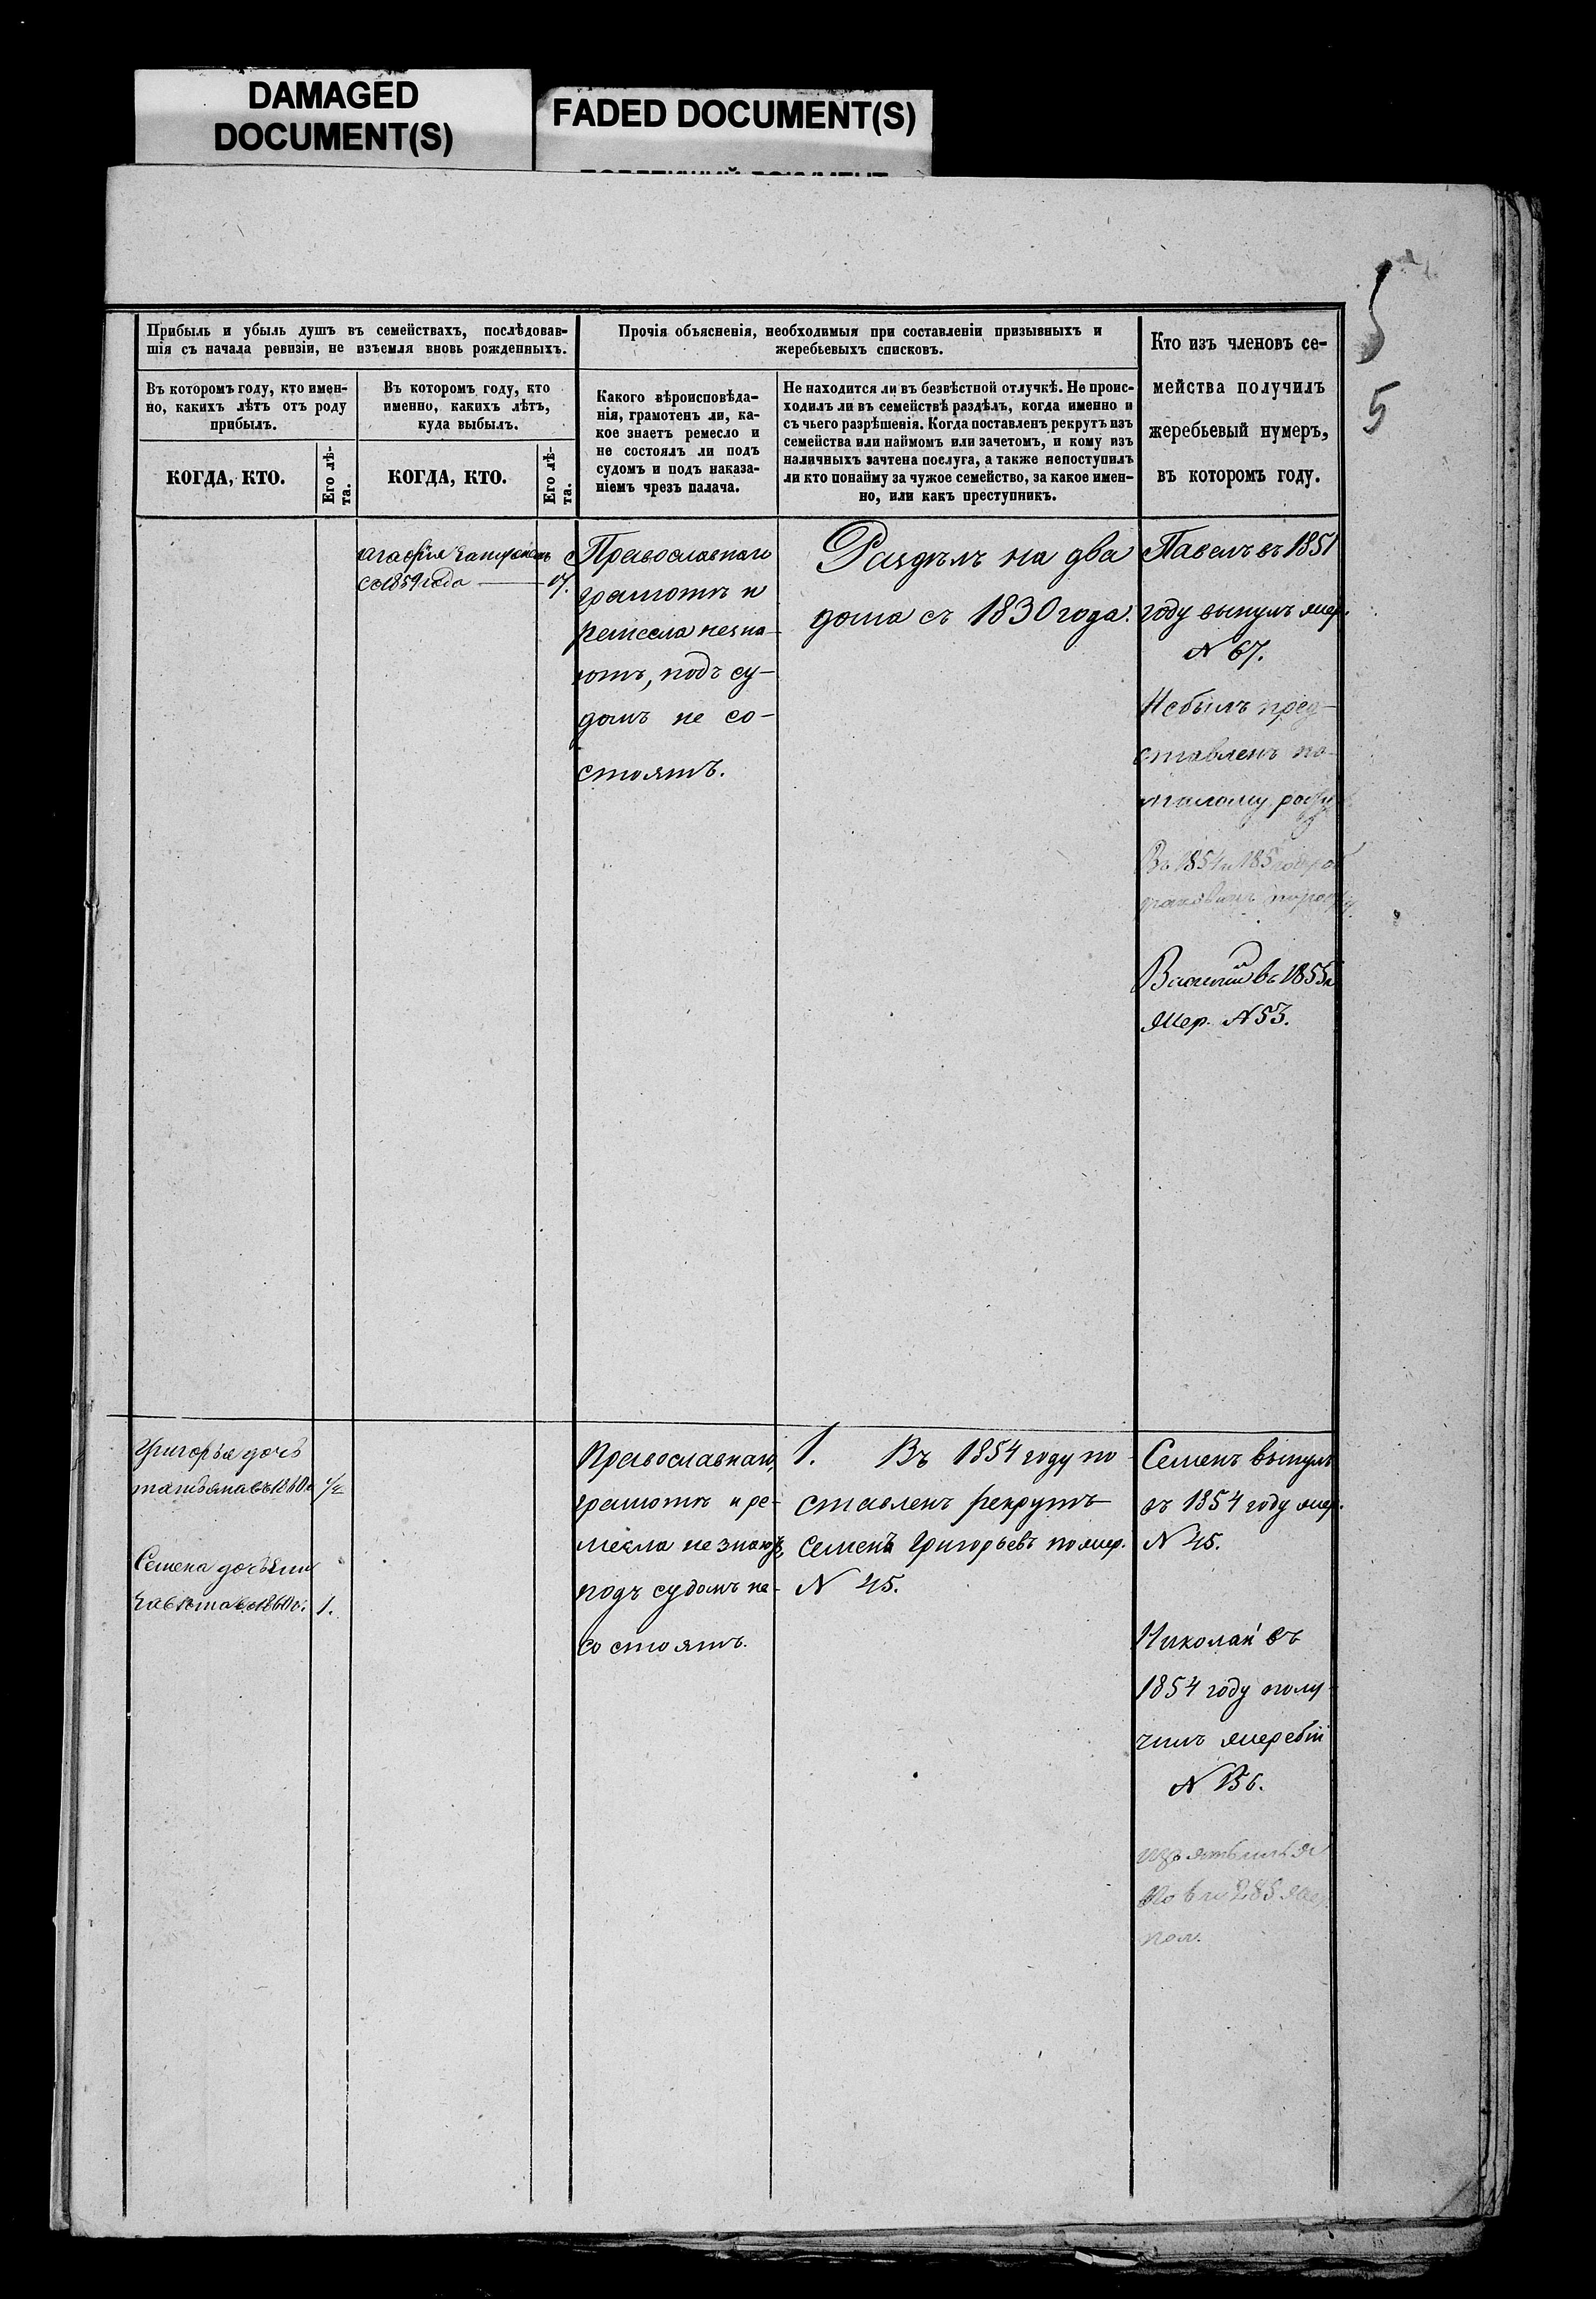 DAMAGED
DOCUMENT(S)
FADED DOCUMENT(S)
5
5
Прибыль и убыль душъ въ семействахъ, послѣдовав-
шія съ начала ревизіи, не изъемля вновь рожденныхъ.
Въ которомъ году, кто имен-
но, какихъ лѣтъ отъ роду
прибылъ.
КОГДА, КТО.
Его лѣ-
та.
Въ которомъ году, кто
именно, какихъ лѣтъ,
куда выбылъ.
КОГДА, КТО.
Его лѣ-
та.
Прочія объясненія, необходимыя при составленіи призывныхъ и
жеребьевыхъ списковъ.
Какого вѣроисповѣда-
нія, грамотенъ ли, ка-
кое знаетъ ремесло и
не состоялъ ли подъ
судомъ и подъ наказа-
ніемъ чрезъ палача.
Не находится ли въ безвѣстной отлучкѣ. Не проис-
ходилъ ли въ семействѣ раздѣлъ, когда именно и
съ чьего разрѣшенія. Когда поставленъ рекрутъ изъ
семейства или наймомъ или зачетомъ, и кому изъ
наличныхъ зачтена послуга, а также непоступилъ
ли кто понайму за чужое семейство, за какое имен-
но, или какъ преступникъ.
Кто изъ членовъ се-
мейства получилъ
жеребьевый нумеръ,
въ которомъ году.
Агафия
со 1859 года 17.
Православнаго
грамотѣ и
ремесла незна-
ютъ, подъ су-
домъ не со-
стоятъ.
Раздѣлъ на два
дома съ 1830 года.
Павелъ въ 1851
году вынулъ жер.
N 67.
Небылъ пред-
ставленъ по
малому росту
Въ 1854 и 185
Василій въ 1855
Жер. N 53.
Григорья дочь
татьяна въ 1860 1/2
Семена дочь
въ 1860 1.
Православнаго,
грамотѣ и ре-
месла не знаютъ,
подъ судомъ не-
состоятъ.
1. Въ 1854 году по-
ставленъ рекрутъ
Семенъ Григорьевъ по жер.
N 45.
Семенъ вынулъ
въ 1854 году жер.
N 45.
Николай въ
1854 году полу-
чилъ жеребій
N 156.
285